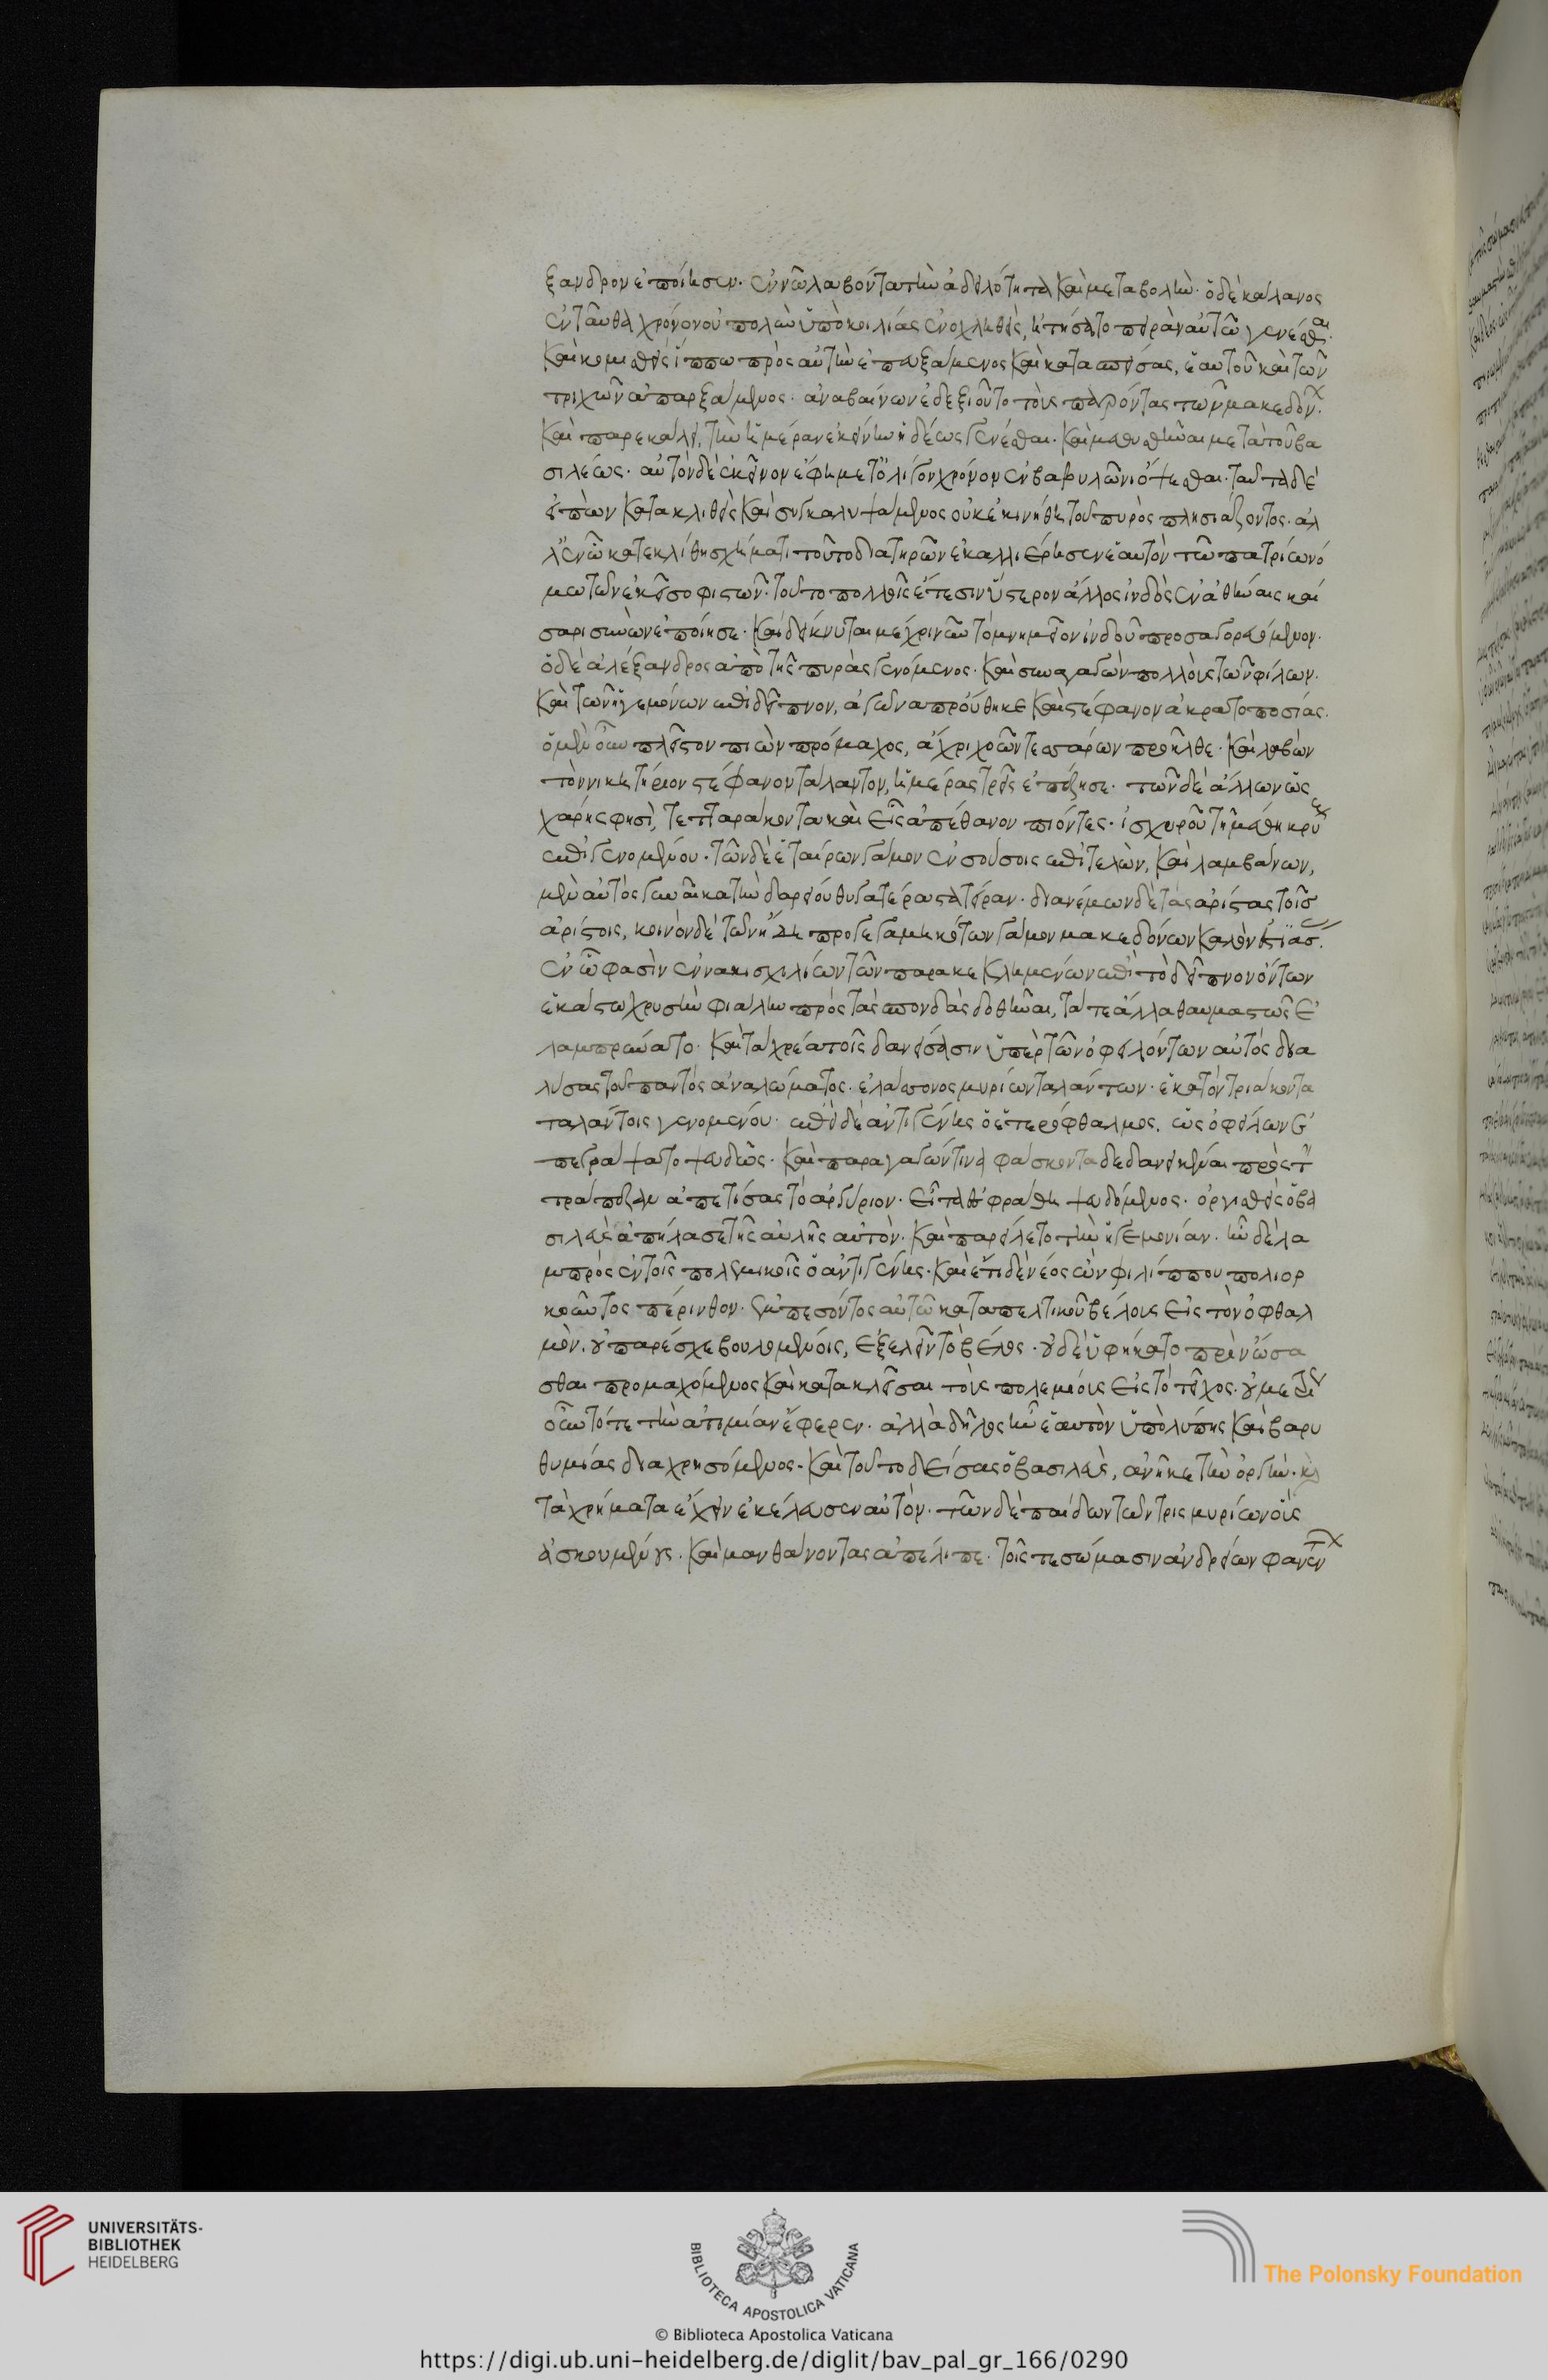 ξανδρον ἐποίησεν. ἐννῶ λαβόντα τὴν ἀδηλότητα καὶ μεταβολήν. ὁ δὲ καλανος
ἐνταῦθα χρόνον οὐ πολὺν ὑπὸ κοιλίας ἐνοχληθεὶς, ἠτήσατο πυρὰν αὐτῶ γενέσθαι.
καὶ κομισθεὶς ἵππω πρὸς αὐτὴν ἐπευξάμενος καὶ κατασπείσας, ἑαυτοῦ καὶ τῶν
τριχῶν ἀπαρξάμενος. ἀναβαίνων ἐδεξιοῦτο τοὺς παρόντας τῶν μακεδόν.
καὶ παρεκάλει, τὴν ἡμέραν ἐκείνην ἡδέως γενέσθαι. καὶ μεθυσθῆναι μετὰ τοῦ βα
σιλέως. αὐτὸν δὲ ἐκεῖνον ἔφη μετ' ὀλίγον χρόνον ἐν βαβυλῶνι ὄψεσθαι. ταῦτα δὲ
εἰπὼν κατακλιθεὶς καὶ συγκαλυψάμενος οὐκ ἐκινήθη τοῦ πυρὸς πλησιάζοντος. ἀλ
λ' ἐν ὧ κατεκλίθη σχήματι τοῦτο διατηρῶν ἐκαλλιέρησεν ἑαυτὸν τῶ πατρίω νό
μω τῶν ἐκεῖ σοφιστῶν. τοῦτο πολλοῖς ἔτεσιν ὕστερον ἄλλος ἰνδὸς ἐν ἀθήναις καί
σαρι συνὼν ἐποίησε. καὶ δείκνυται μέχρι νῦν τὸ μνημεῖον ἰνδοῦ προσαγορευόμενον.
ὁ δὲ ἀλέξανδρος ἀπὸ τῆς πυρᾶς γενόμενος. καὶ συναγαγὼν πολλοὺς τῶν φίλων.
καὶ τῶν ἡγεμόνων ἐπὶ δεῖπνον, ἀγῶνα προύθηκε καὶ στέφανον ἀκρατοποσίας.
ὁ μὲν οὖν πλεῖστον πιὼν πρόμαχος, ἄχρι χοῶν τεσσάρων προῆλθε. καὶ λαβὼν
τὸν νικητήριον στέφανον τάλαντον, ἡμέρας τρεῖς ἐπέζησε. τῶν δὲ ἄλλων ὥς
χάρης φησὶ, τετταράκοντα καὶ εἷς ἀπέθανον πιόντες. ἰσχυροῦ τῆ μέθη κρύους
ἐπιγενομένου. τῶν δὲ ἑταίρων γάμον ἐν σούσοις ἐπιτελῶν, καὶ λαμβάνων,
μὲν αὐτὸς γυναῖκα τὴν δαρείου θυγατέρα στάτειραν. διανέμων δὲ τὰς ἀρίστας τοῖς
ἀρίστοις, κοινὸν δὲ τῶν ἤδη προγεγαμηκότων γάμον μακεδόνων καλὸν ἑστιάσ.
ἐν ὧ φασὶν ἐνακισχιλίων τῶν παρακεκλημένων ἐπὶ τὸ δεῖπνον ὄντων
ἑκάστω χρυσῆν φιάλην πρὸς τὰς σπονδὰς δοθῆναι, τά τε ἄλλα θαυμαστῶς ἐ
λαμπρύνατο. καὶ τὰ χρέα τοῖς δανείσασιν ὑπὲρ τῶν ὀφειλόντων αὐτὸς δια
λύσας τοῦ παντὸς ἀναλώματος. ἐλάσσονος μυρίων ταλάντων. ἑκατὸν τριάκοντα
ταλάντοις γενομένου. ἐπεὶ δὲ ἀντιγένης ὁ ἑτερόφθαλμος. ὡς ὀφείλων ἐ
πεγράψατο ψευδῶς. καὶ παραγαγών τινα φάσκοντα δεδανεικέναι πρὸς τὴν
τράπεζαν ἀπετίσας τὸ ἀργύριον. εἶτα ἐφωράθη ψευδόμενος. ὀργισθεὶς ὁ βα
σιλεὺς ἀπήλασε τῆς αὐλῆς αὐτόν. καὶ παρείλετο τὴν ἡγεμονίαν. ἦν δὲ λα
μπρὸς ἐν τοῖς πολεμικοῖς ὁ ἀντιγένης. καὶ ἔτι δὲ νέος ὢν φιλίππου πολιορ
κοῦντος πέρινθον. ἐμπεσόντος αὐτῶ καταπελτικοῦ βέλους εἰς τὸν ὀφθαλ
μὸν. οὐ παρέσχε βουλομένοις, ἐξελεῖν τὸ βέλος. οὐδὲ ὑφήκατο πρὶν ὤσα
σθαι προμαχόμενος καὶ κατακλεῖσαι τοὺς πολεμίους εἰς τὸ τεῖχος. οὐ μετρί
οὖν τότε τὴν ἀτιμίαν ἔφερεν. ἀλλὰ δῆλος ἦν ἑαυτὸν ὑπὸ λύπης καὶ βαρυ
θυμίας διαχρησόμενος. καὶ τοῦτο δείσας ὁ βασιλεὺς, ἀνῆκε τὴν ὀργήν. καὶ
τὰ χρήματα ἔχειν ἐκέλευσεν αὐτόν. τῶν δὲ παίδων τῶν τρισμυρίων οὓς
ἀσκουμένους. καὶ μανθάνοντας ἀπέλιπε. τοῖς τε σώμασιν ἀνδρείων φανέντ
UNIVERSITÄTS-
BIBLIOTHEK
HEIDELBERG
BIBLIOTECA APOSTOLICA VATICANA
© Biblioteca Apostolica Vaticana
The Polonsky Foundation
https://digi.ub.uni-heidelberg.de/diglit/bav_pal_gr_166/0290